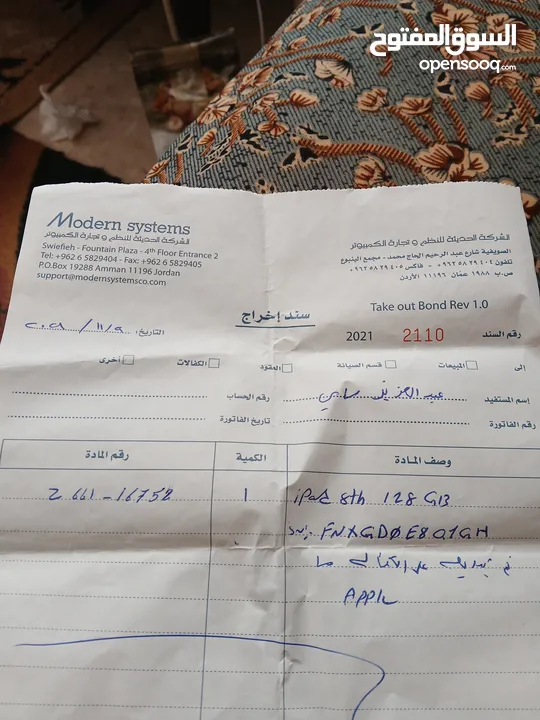 السوق المفتوح
opensooq.com
Modern systems
الشركة الحديثة للنظم و تجارة الكمبيوتر
Swiefieh - Fountain Plaza - 4th Floor Entrance 2
Tel: +962 6 5829404 - Fax: +962 6 5829405
P.O.Box 19288 Amman 11196 Jordan
support@modernsystemsco.com
الشركة الحديثة للنظم و تجارة الكمبيوتر
الصويفية شارع عبد الرحيم الحاج محمد - مجمع الينبوع
تلفون ٥٨٢٩٤٠٤ ٠٩٦٢٦ - فاكس ٥٨٢٩٤٠٥ ٠٩٦٢٦
عمان ١١١٩٦ الأردن
Take out Bond Rev 1.0
سند إخراج
رقم السند 2110 2021
التاريخ: ٩ / ١١ /
إلى المبيعات قسم الصيانة العقود الكفالات أخرى
إسم المستفيد عبد العزيز
رقم الحساب
رقم الفاتورة
تاريخ الفاتورة
وصف المادة الكمية رقم المادة
iPad 8th 128 GB 1 Z 661-16752
FNXGD0E8Q1GH
تم تبديله على الكفالة من
Apple